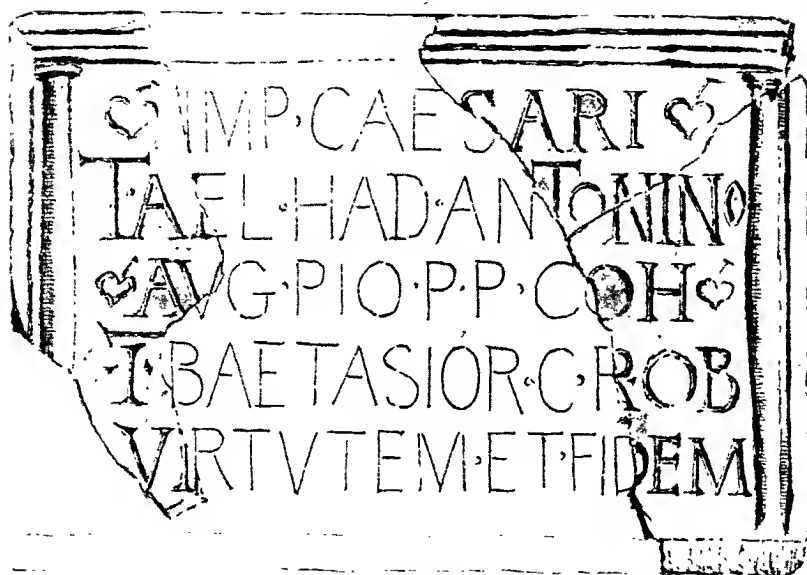 IMP·CAESARI
T·AEL·HAD·ANTONINO
AVG·PIO·P·P·COH
I BAETASIOR·C·R·OB
VIRTVTEM·ET·FIDEM